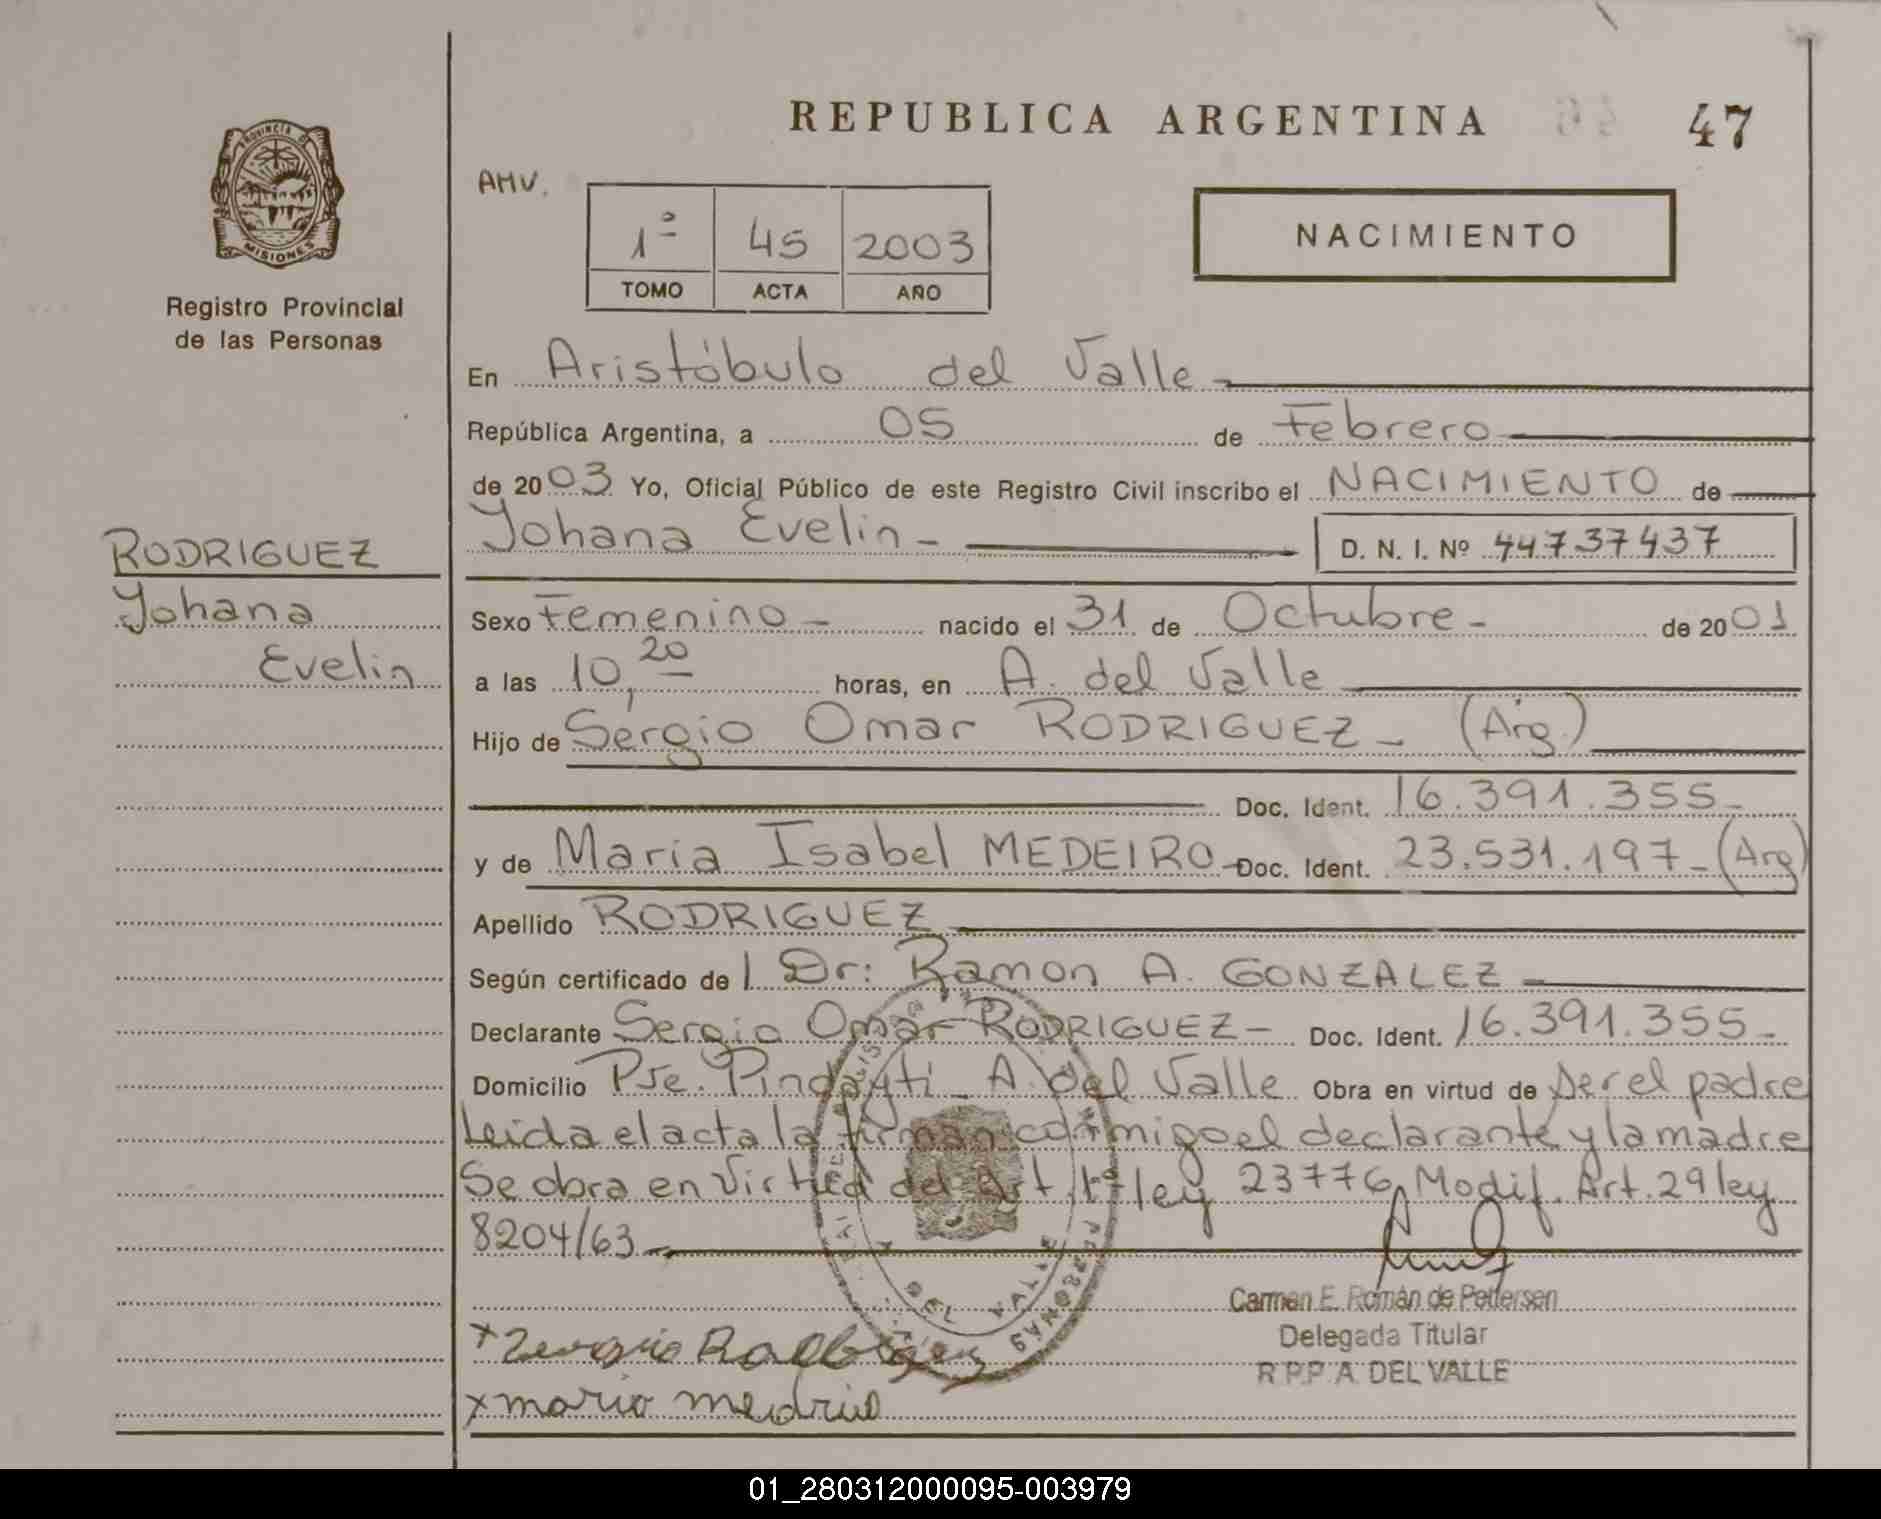 REPUBLICA ARGENTINA
47
PROVINCIA DE
MISIONES
Registro Provincial
de las Personas
AMV.
1º 45 2003
TOMO ACTA AÑO
NACIMIENTO
En Aristóbulo del Valle
República Argentina, a 05 de Febrero
de 2003 Yo, Oficial Público de este Registro Civil inscribo el NACIMIENTO de
RODRIGUEZ
Yohana
Evelin
Yohana Evelin - D. N. I. Nº 44737437
Sexo Femenino - nacido el 31 de Octubre - de 2001
a las 10,20 horas, en A. del Valle
Hijo de Sergio Omar RODRIGUEZ - (Arg.)
Doc. Ident. 16.391.355-
y de Maria Isabel MEDEIRO - Doc. Ident. 23.531.197 - (Arg)
Apellido RODRIGUEZ
Según certificado de l Dr: Ramon A. GONZALEZ
Declarante Sergio Omar RODRIGUEZ - Doc. Ident. 16.391.355-
Domicilio Pje. Pindayti - A. del Valle Obra en virtud de ser el padre
Leida el acta la firman conmigo el declarante y la madre
Se obra en virtud del Art. 1º ley 23776 Modif. Art. 29 ley
8204/63
DEL VALLE
PERSONAS
Carmen E. Román de Pettersen
Delegada Titular
R.P.P. A. DEL VALLE
x Sergio Rodriguez
x maria
01_280312000095-003979